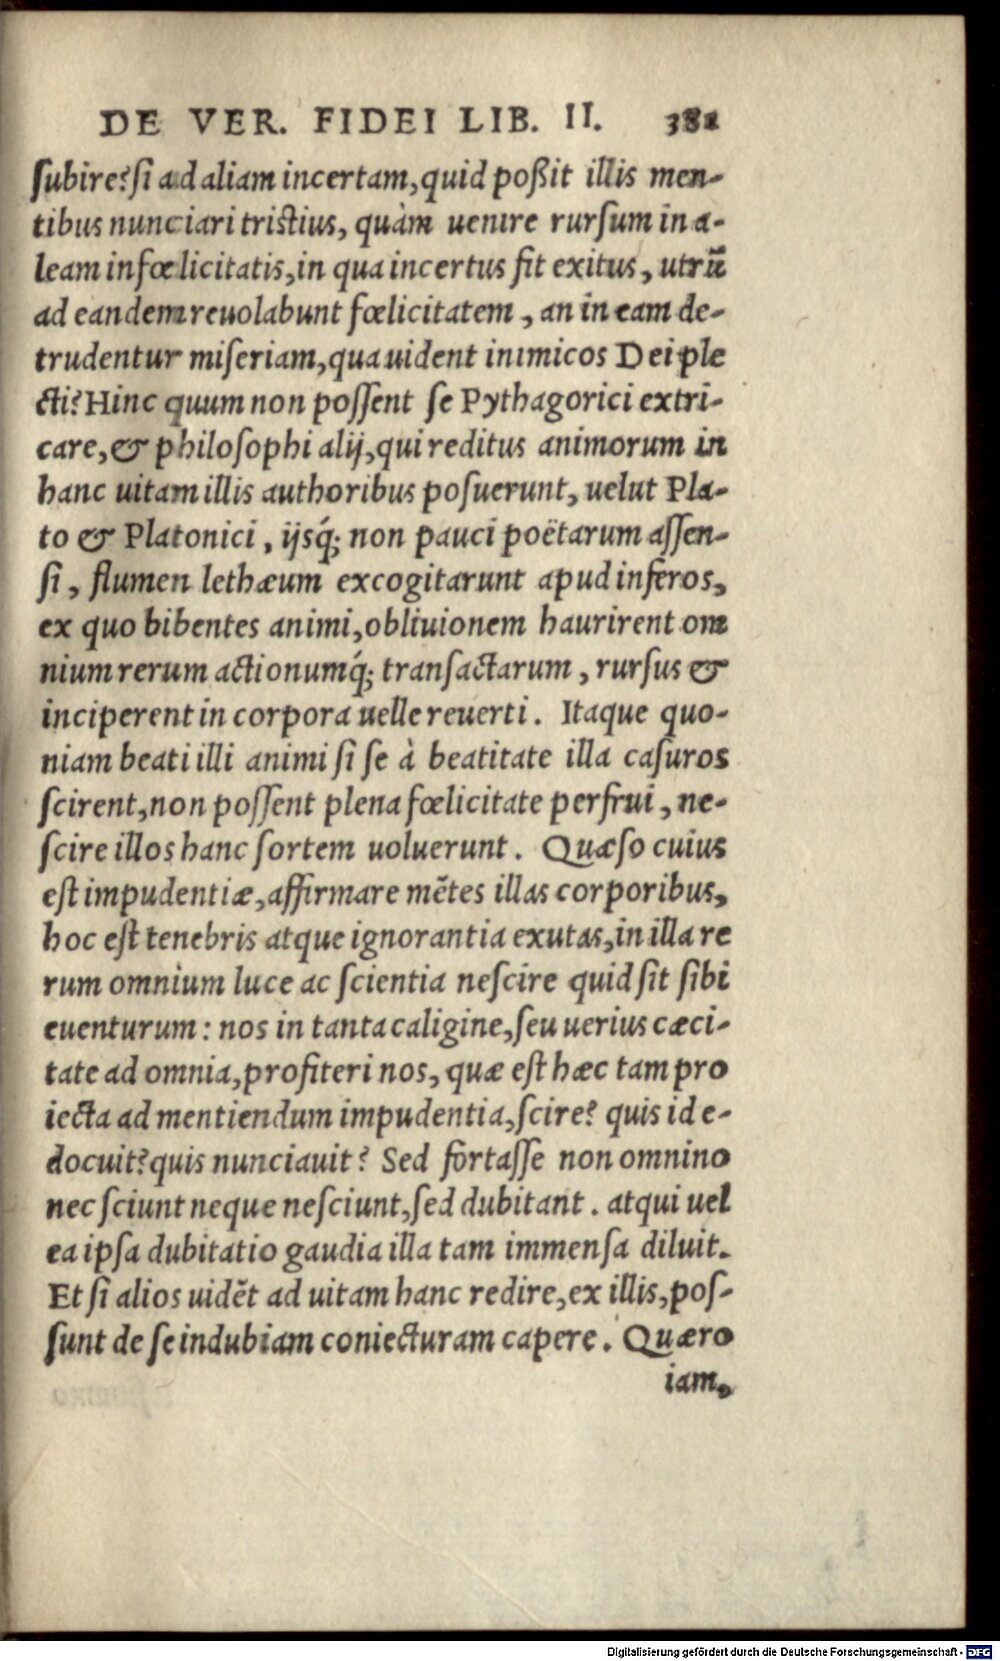 DE VER. FIDEI LIB. II. 381
ſubire? ſi ad aliam incertam, quid poßit illis men-
tibus nunciari tristius, quàm uenire rurſum in a-
leam infœlicitatis, in qua incertus fit exitus, utrũ
ad eandem reuolabunt fœlicitatem, an in eam de-
trudentur miſeriam, qua uident inimicos Dei ple
cti? Hinc quum non poſſent ſe Pythagorici extri-
care, & philoſophi alij, qui reditus animorum in
hanc uitam illis authoribus poſuerunt, uelut Pla-
to & Platonici, ijsq́; non pauci poëtarum aſſen-
ſi, flumen lethæum excogitarunt apud inferos,
ex quo bibentes animi, obliuionem haurirent om
nium rerum actionumq́; tranſactarum, rurſus &
inciperent in corpora uelle reuerti. Itaque quo-
niam beati illi animi ſi ſe à beatitate illa caſuros
ſcirent, non poſſent plena fœlicitate perfrui, ne-
ſcire illos hanc ſortem uoluerunt. Quæſo cuius
eſt impudentiæ, affirmare mẽtes illas corporibus,
hoc eſt tenebris atque ignorantia exutas, in illa re
rum omnium luce ac ſcientia neſcire quid ſit ſibi
euenturum: nos in tanta caligine, ſeu uerius cæci-
tate ad omnia, profiteri nos, quæ eſt hæc tam pro
iecta ad mentiendum impudentia, ſcire? quis id e-
docuit? quis nunciauit? Sed fortaſſe non omnino
nec ſciunt neque neſciunt, ſed dubitant. atqui uel
ea ipſa dubitatio gaudia illa tam immenſa diluit.
Et ſi alios uidẽt ad uitam hanc redire, ex illis, poſ-
ſunt de ſe indubiam coniecturam capere. Quæro
iam,
Digitalisierung gefördert durch die Deutsche Forschungsgemeinschaft - DFG